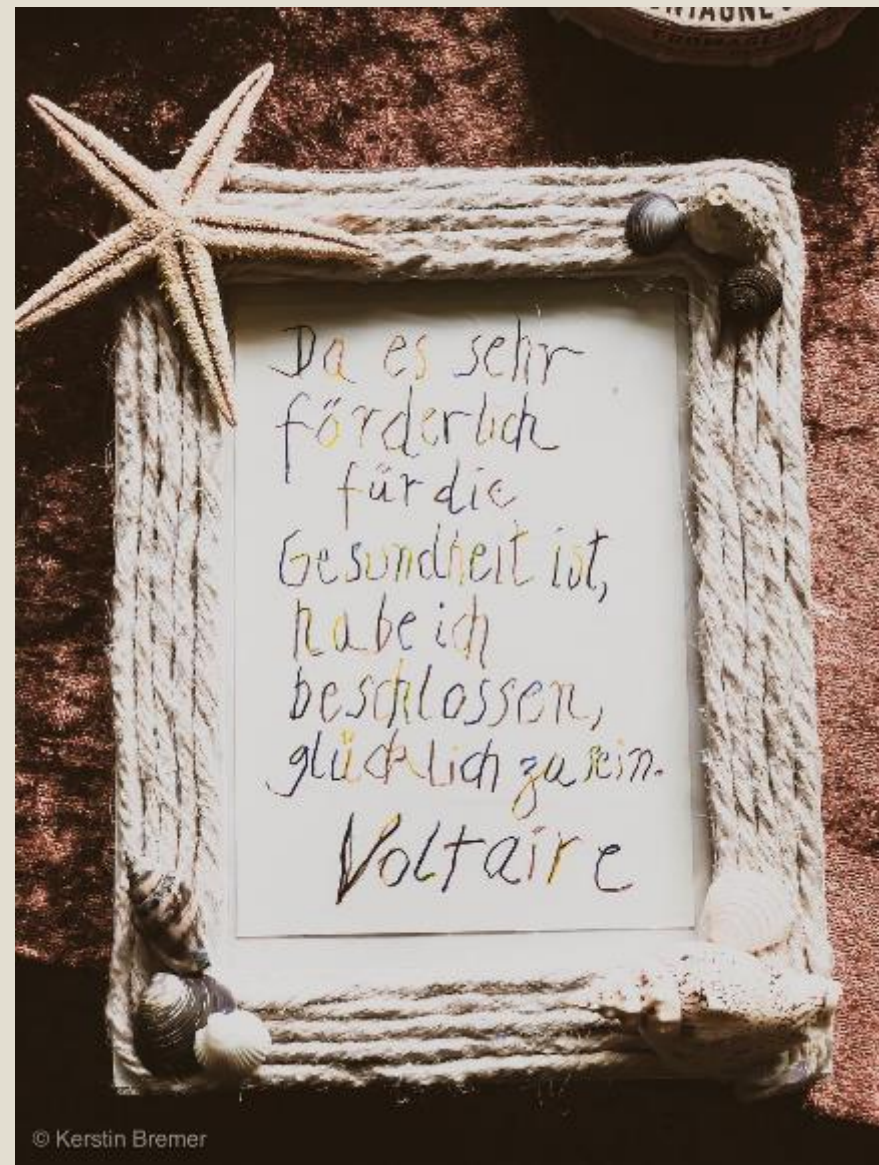 Da es sehr
förderlich
für die
Gesundheit ist,
habe ich
beschlossen,
glücklich zu sein.
Voltaire
© Kerstin Bremer